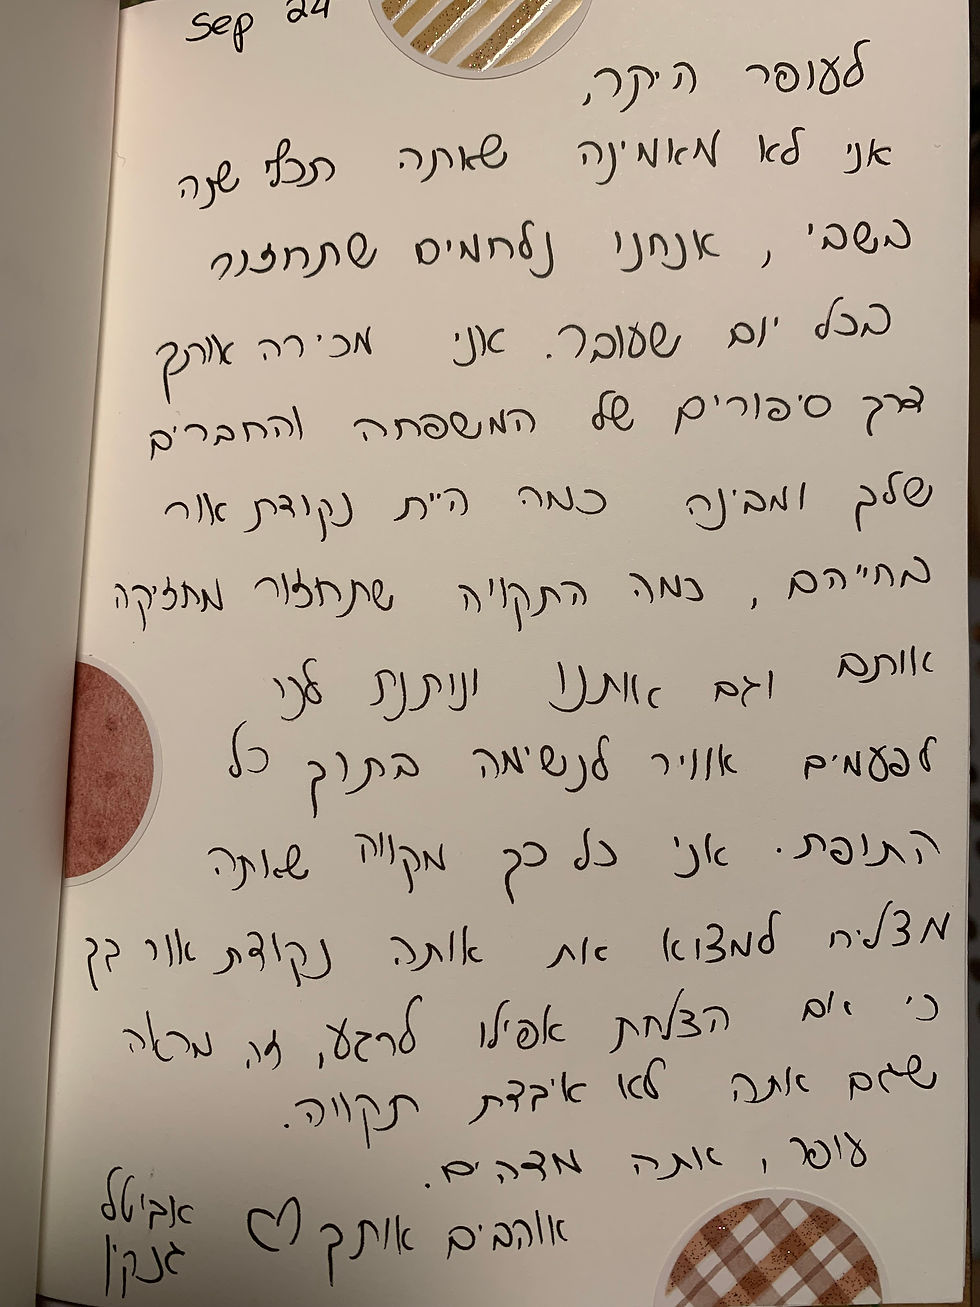 Sep 24
לעופר היקר,
אני לא מאמינה שאתה תכף שנה
בשבי, אנחנו נלחמים שתחזור
בכל יום שעובר. אני מכירה אותך
דרך סיפורים של המשפחה והחברים
שלך ומבינה כמה היית נקודת אור
בחייהם, כמה התקויה שתחזור מחזיקה
אותם וגם אותנו ונותנת לנו
לפעמים אוויר לנשימה בתוך כל
התופת. אני כל כך מקווה שאתה
מצליח למצוא את אותה נקודת אור בך
כי אם הצלחת אפילו לרגע, זה מראה
שגם אתה לא איבדת תקווה.
עופר, אתה מדהים.
אוהבים אותך ♡ אביטל
גנקין